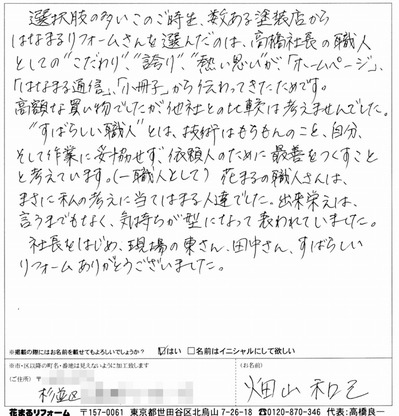 選択肢の多いこのご時世、数ある塗装店から
はなまるリフォームさんを選んだのは、高橋社長の職人
としての"こだわり"、"誇り"、"熱い思い"が「ホームページ」、
「はなまる通信」、「小冊子」から伝わってきたためです。
高額な買い物でしたが他社との比較は考えませんでした。
"すばらしい職人"とは、技術はもちろんのこと、自分、
そして作業に妥協せず、依頼人のために最善をつくすこと
と考えています。(一職人として) 花まるの職人さんは、
まさに私の考えに当てはまる人達でした。出来栄えは、
言うまでもなく、気持ちが型になって表われていました。
社長をはじめ、現場の東さん、田中さん、すばらしい
リフォームありがとうございました。
※掲載の際にはお名前を載せてもよろしいでしょうか? ☑はい □名前はイニシャルにして欲しい
※市・区以降の町名・番地は見えないように加工致します
(ご住所) 〒
杉並区
(お名前)
畑山 和己
花まるリフォーム 〒157-0061 東京都世田谷区北烏山7-26-18 ☎0120-870-346 代表:高橋良一